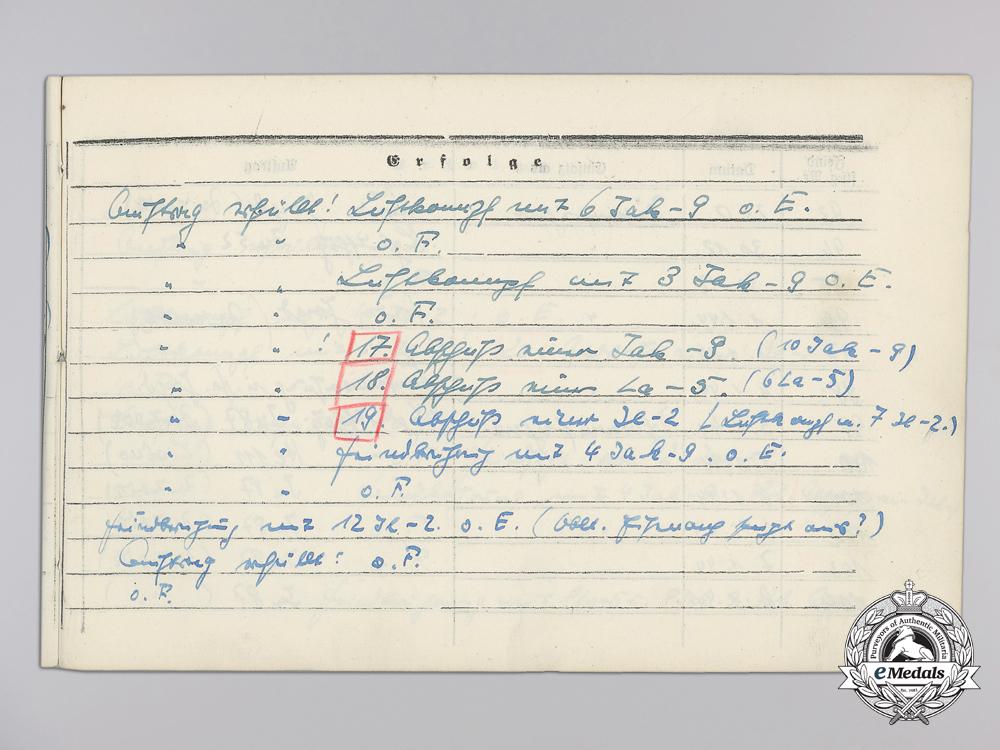 Erfolge
Auftrag erfüllt! Luftkampf mit 6 Jak-9 o. E.
" " o. F.
" " Luftkampf mit 3 Jak-9 o. E.
" " o. F.
" " ! 17. Abschuß einer Jak-9. (10 Jak-9)
" " 18. Abschuß einer La-5. (6 La-5)
" " 19. Abschuß einer Il-2 (Luftkampf m. 7 Il-2.)
" " Feindberührung mit 4 Jak-9. o. E.
" " o. F.
Feindberührung mit 12 Il-2. o. E. (Oblt. aus?)
Auftrag erfüllt! o. F.
o. F.
Purveyors of Authentic Militaria
eMedals